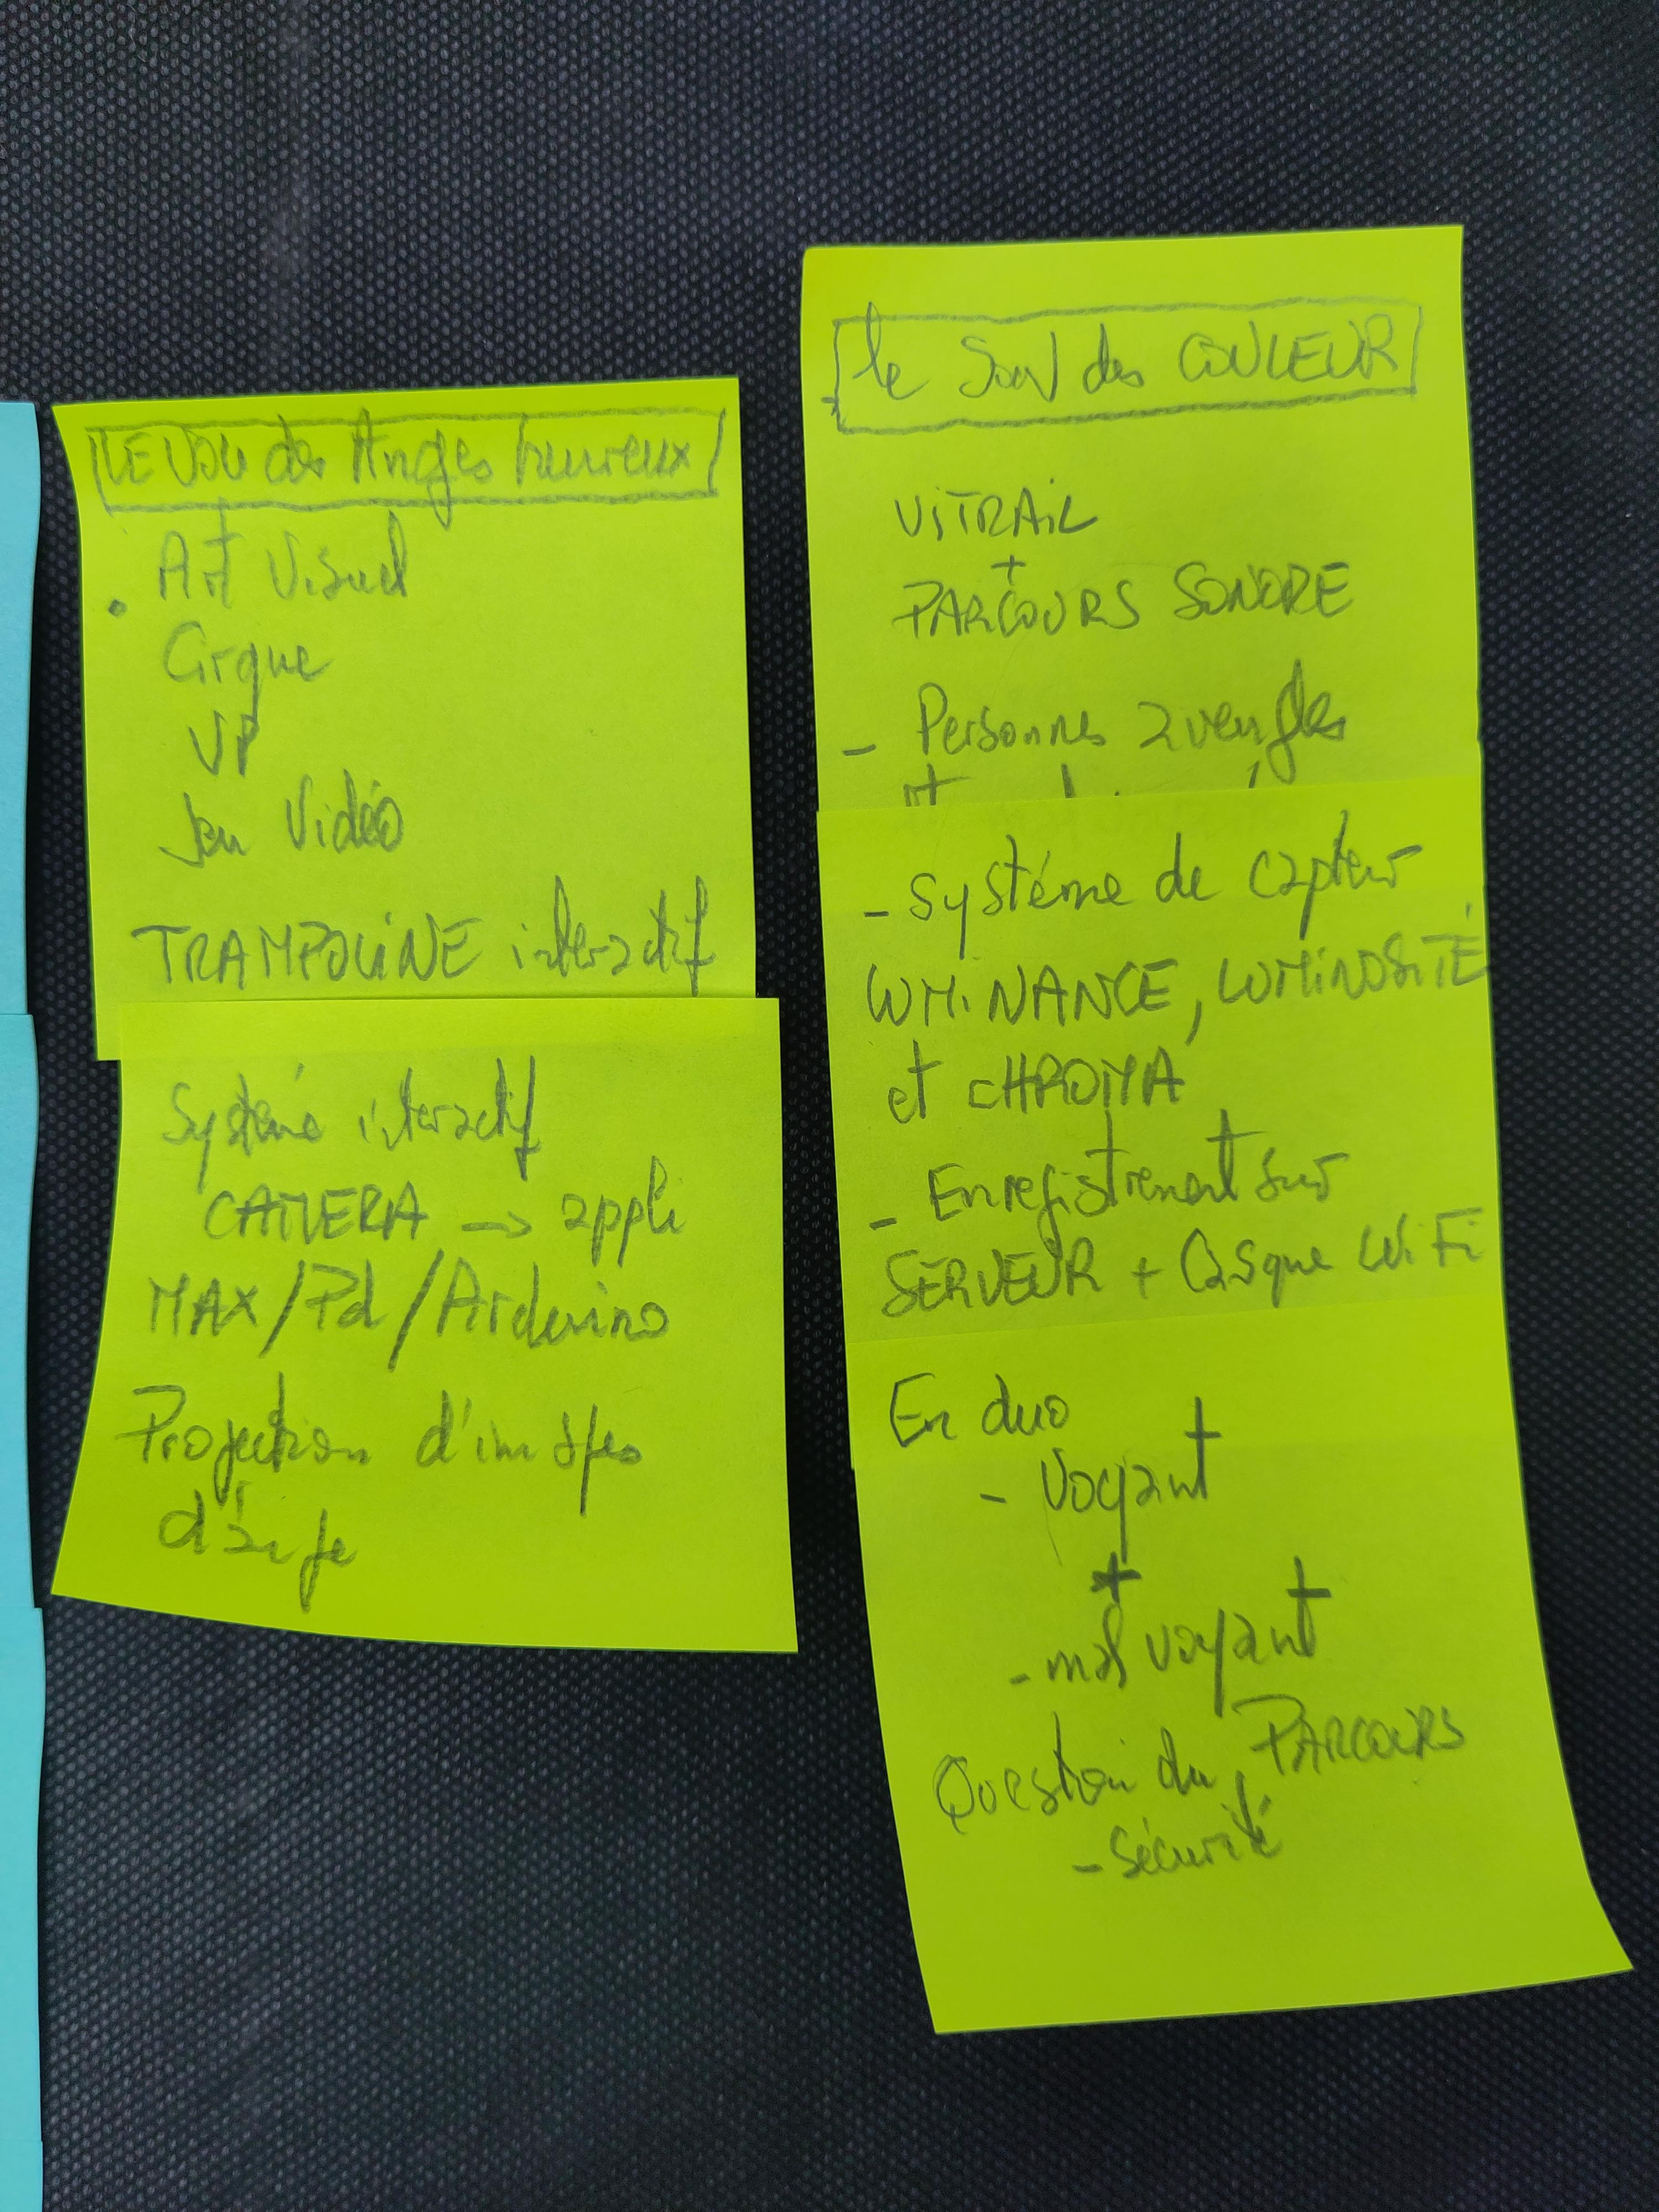 LE VOL des Anges heureux
. Art Visuel
Cirque
Jeu Vidéo
TRAMPOLINE interactif
Système interactif
CAMERA -> appli
MAX/Pd/Arduino
Projection d'images
d'ange
le Son des COULEUR
ViTRAiL
+
PARCOURS SONORE
- Personnes aveugles
et
- système de capteur
LUMiNANCE, LUMiNOSiTÉ
et CHROMA
- Enregistrement sur
SERVEUR + Casque WiFi
En duo
- Voyant
+
- mal voyant
Question du PARCOURS
- Sécurité